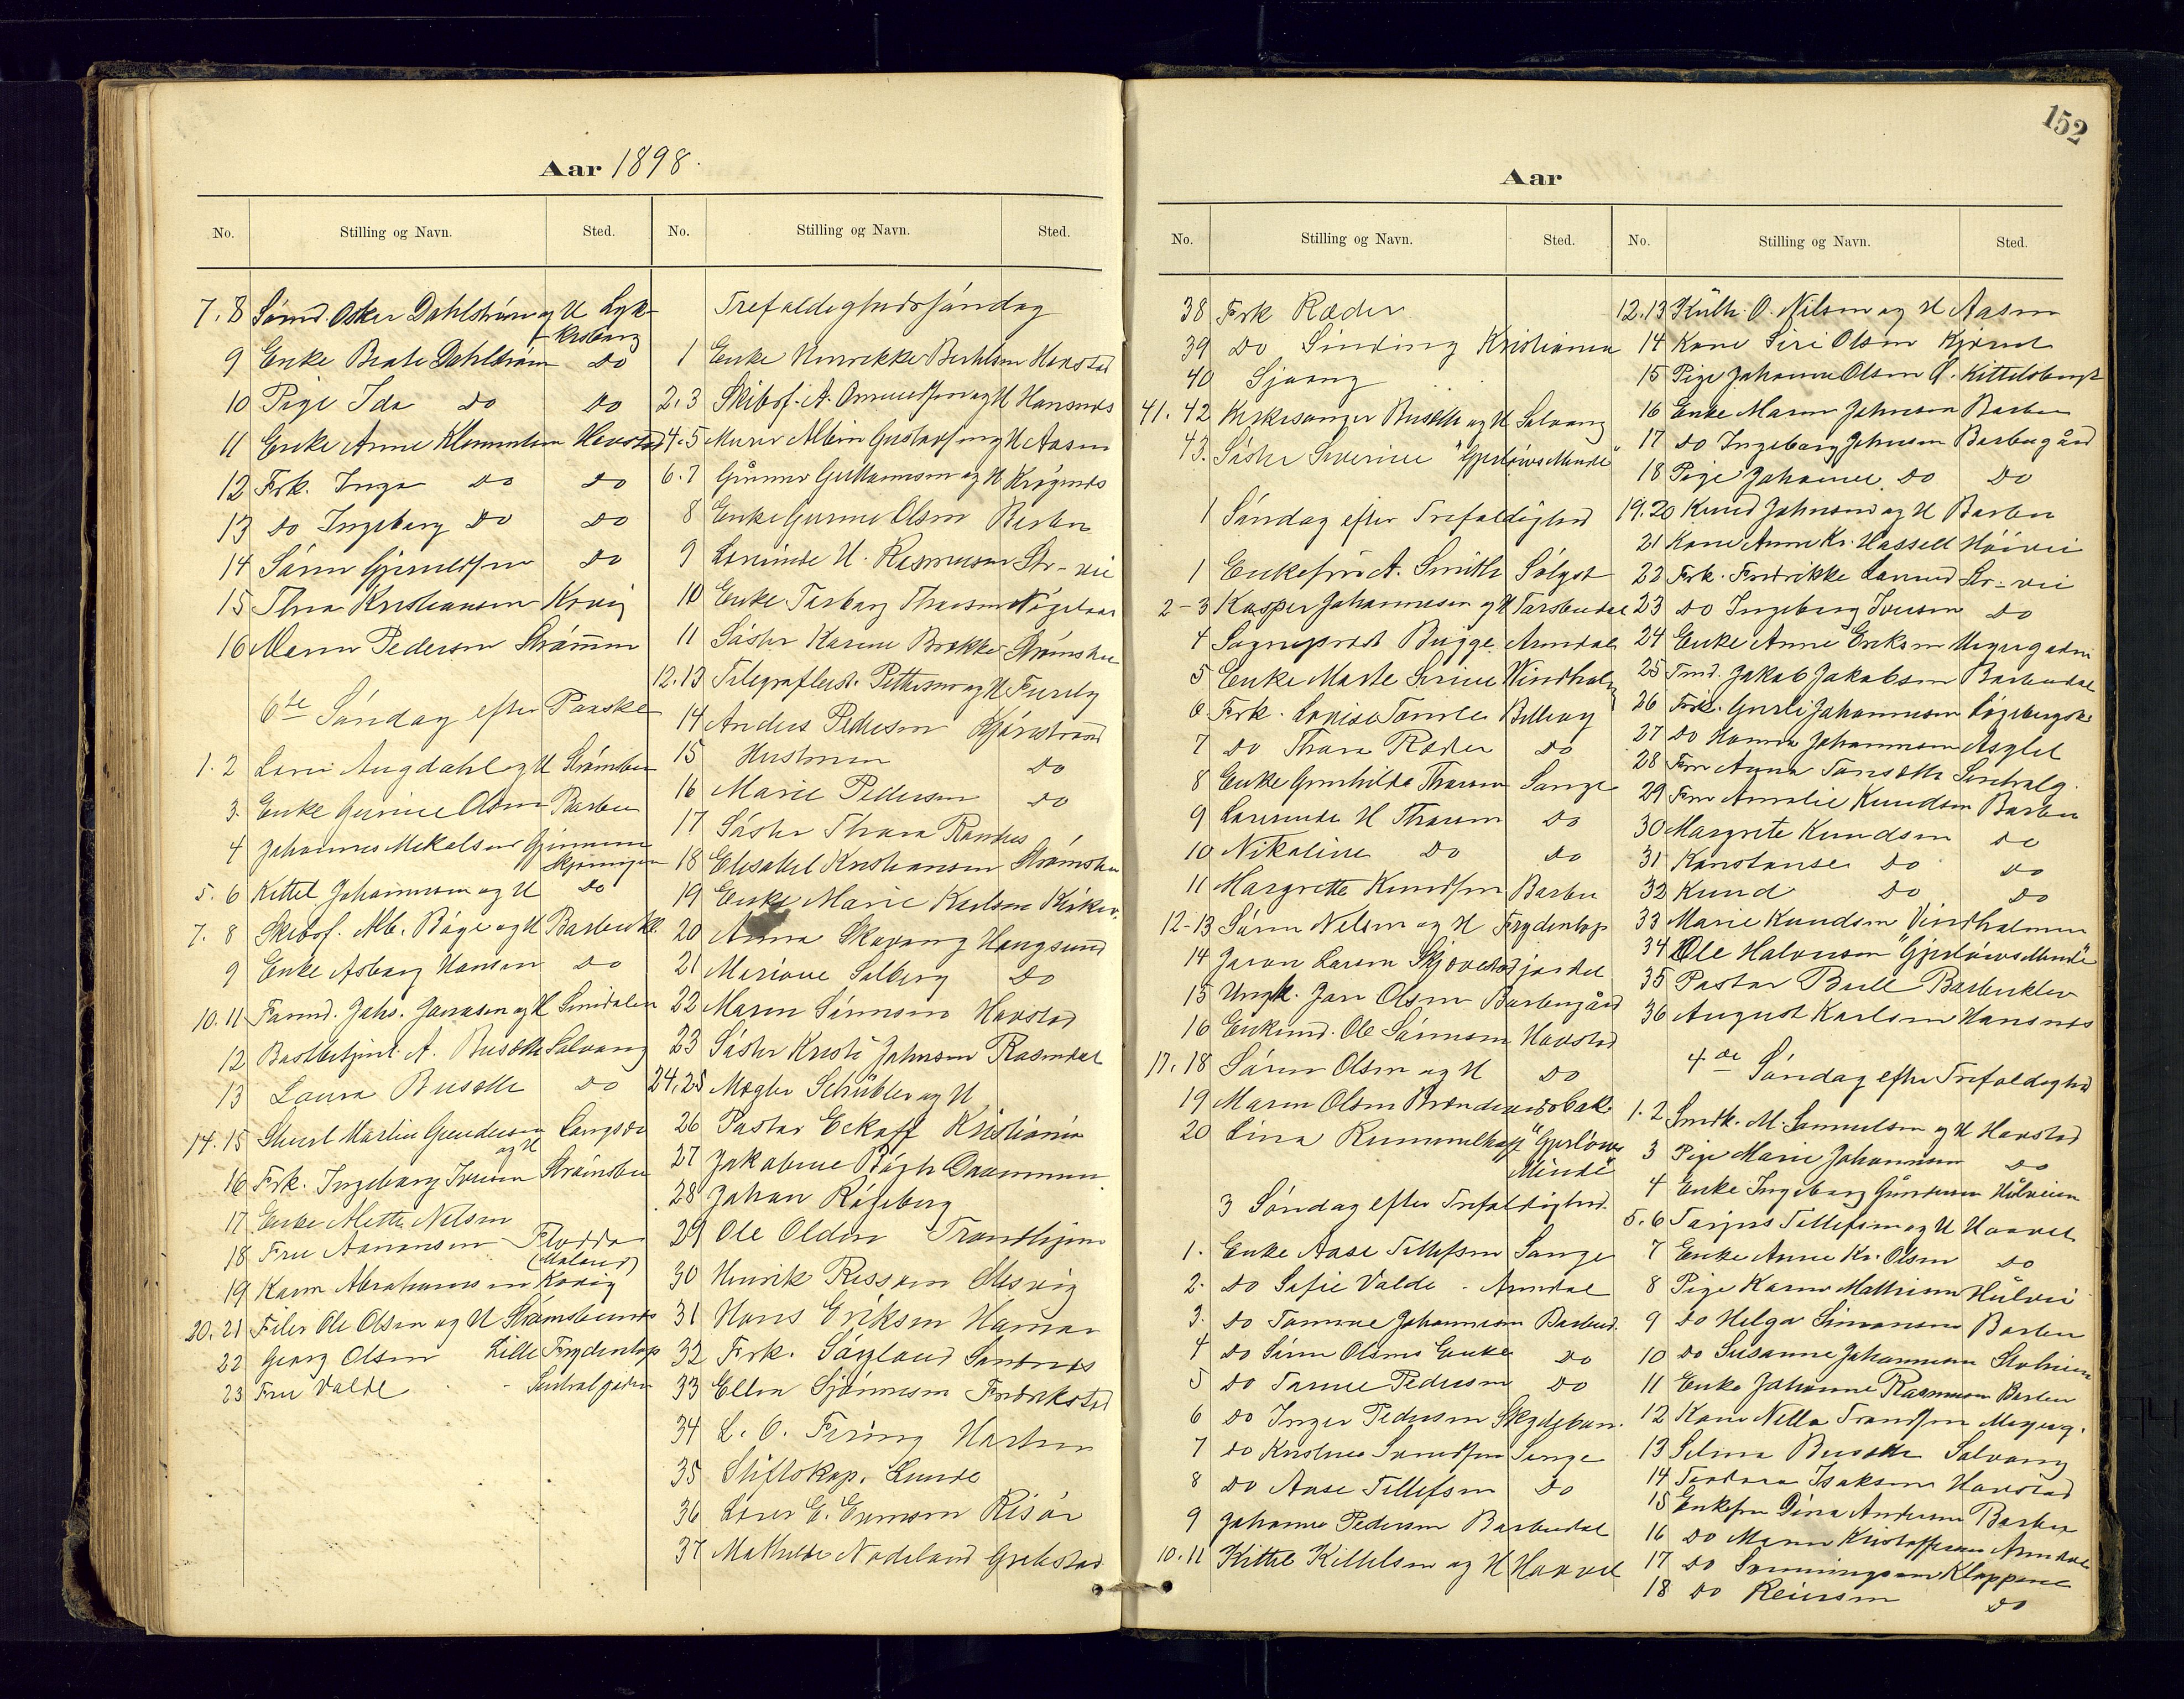 152
Aar 1898.
No. Stilling og Navn. Sted. No. Stilling og Navn. Sted.
7. 8 Sømd. Oskar Dahlstrøm og H Lyk-
kesborg
9 Enke Beate Dahlstrøm do
10 Pige Ida do do
11 Enke Anne Klemmetsen Havstad
12 Frk. Inga do do
13 do Ingeborg do do
14 Søren Gjeruldsen do
15 Thea Kristiansen Krøig
16 Maren Pedersen Strømmen
6te Søndag efter Paaske
1. 2 Lars Augdahl og H Strømsbu
3. Enke Gurine Olsen Barbu
4 Johannes Mikalsen
5. 6 Kittel Johannesen og H do
7. 8 Skibsf. Alb. Bøge og H Barbukl.
9 Enke Asborg Hansen do
10. 11 Farmd. Johs. Jonasen og H Smidalen
12 A. Busæth Solvang
13 Laura Busæth do
14. 15 Stuert Martin Gundersen Langsæ
og H
16 Frk. Ingeborg Iversen Strømsbu
17 Enke Alette Nilsen
18 Fru Aanonsen Flødda
19 Karen Abrahamsen Krøig
20. 21 Filer Ole Olsen og H Strømsbunes
22 Georg Olsen Lille Frydenlop
23 Fru Valde Sentralgaden
Trefoldighedssøndag
1 Enke Henrekke Berthelsen Havstad
2. 3 Skibsf. A. Omundsen og H Hansnes
4. 5 Murer Albin Gustavsen og H Aasen
6. 7 Gunner Guttormsen og H Krøgenes
8 Enke Gurine Olsen Barbu
9 Lærerinde H. Rasmussen Str-vei
10 Enke Torborg Thorsen
11 Søster Karine Brække Strømsbu
12. 13 Telegrafbest. Pettersen og H Fureby
14 Anders Pedersen Kjørestrand
15 Hustruen do
16 Marie Pedersen do
17 Søster Thora Randnes
18 Elisabet Kristiansen Strømsbu
19 Enke Marie Karlsen Kirkev.
20 Anna Skavang Haugsund
21 Mariane Solberg do
22 Maren Sørensen Havstad
23 Søster Kristi Johnsen Rasmdal
24. 25 Mægler Schübler og H
26 Pastor Eckoff Kristiania
27 Jakobine Bøgh Drammen
28 Johan Røgeberg
29 Ole Olden Trondhjem
30 Henrik Ressem Alesvig
31 Hans Eriksen Hamar
32 Frk. Søyland Sandnes
33 Ellen Sjønnesen Fredrikstad
34 L. O. Fering Horten
35 Stiftskap. Lunde
36 Lærer E. Evensen Risør
37 Mathilde Nodeland Grimstad
Aar
No. Stilling og Navn. Sted. No. Stilling og Navn. Sted.
38 Frk Ræder
39 do Sinding Kristiania
40 Sjaang
41. 42 Kirkesanger Busæth og H Solvang
43. Søster Severine "Gjerløws Minde"
1 Søndag efter Trefoldighed
1 Enkefru A. Smith Sølyst
2-3 Kasper Johannesen og H Torsbudal
4 Sogneprest Bugge Arendal
5 Enke Marte Serine Vindholm
6 Frk. Lovise Tomle Billevej
7 do Thora Ræder do
8 Enke Gunhilde Thorsen Songe
9 Lærerinde H Thorsen do
10 Nikoline do do
11 Margrethe Knudsen Barbu
12-13 Søren Nilsen og H Frydenlop
14 Jørgen Larsen
15 Ungk. Jan Olsen Barbugård
16 Enkemd. Ole Sørensen Havstad
17. 18 Søren Olsen og H do
19 Maren Olsen
20 Lina Rummelhoff "Gjerløws
Minde"
3 Søndag efter Trefoldighed.
1. Enke Aase Tellefsen Songe
2. do Sofie Valde - Arendal
3. do Tomine Johannesen Barbud.
4 do Søren Olsens Enke do
5 do Tarine Pedersen do
6 do Inger Pedersen Skydeban.
7 do Kristine Svendsen Songe
8 do Aase Tellefsen do
9 Johanne Pedersen Barbudal
10. 11 Kittel Kittelsen og H Haavet
12. 13 O. Nilsen og H Aasen
14 Kone Siri Olsen Kjørnet
15 Pige Johanne Olsen Ø. Kittelsbugt
16 Enke Maren Johnsen Barbu
17 do Ingeborg Johnsen Barbugård
18 Pige Johanne do do
19. 20 Knud Johnsen og H Barbu
21 Kone Anne Kr. Hassell Høivei
22 Frk. Fredrikke Larsen Str-vei
23 do Ingeborg Iversen do
24 Enke Anne Eriksen Meyergaden
25 Tmd. Jakob Jakobsen Barbudal
26 Frk. Gurli Johannesen
27 do Hanna Johannesen Asylet
28 Fru Anna Tonseth Sentralg.
29 Fru Amalie Knudsen Barbu
30 Margrete Knudsen do
31 Konstanse do do
32 Knud do do
33 Marie Knudsen Vindholmen
34 Ole Halvorsen "Gjerløws Minde"
35 Pastor Bull Barbuklev
36 August Karlsen Hansnes
4de Søndag efter Trefoldighed
1. 2 Smedk. M. Samuelsen og H Havstad
3 Pige Marie Johannesen do
4 Enke Ingeborg Gundersen Hulveien
5. 6 Tarjus Tellefsen og H Haavet
7 Enke Anne Kr. Olsen do
8 Pige Karen Mathisen Hulvei
9 do Helga Simonsen Barbu
10 do Susanne Johannesen
11 Enke Johanne Rasmusen Barbu
12 Kone Nella Trondsen Meyerg.
13 Selma Busæth Solvang
14 Teodora Isaksen Havstad
15 Enkefru Dina Andersen Barbu
16 do Maren Kristoffersen Arendal
17 do Klappene
18 do Reiersen do